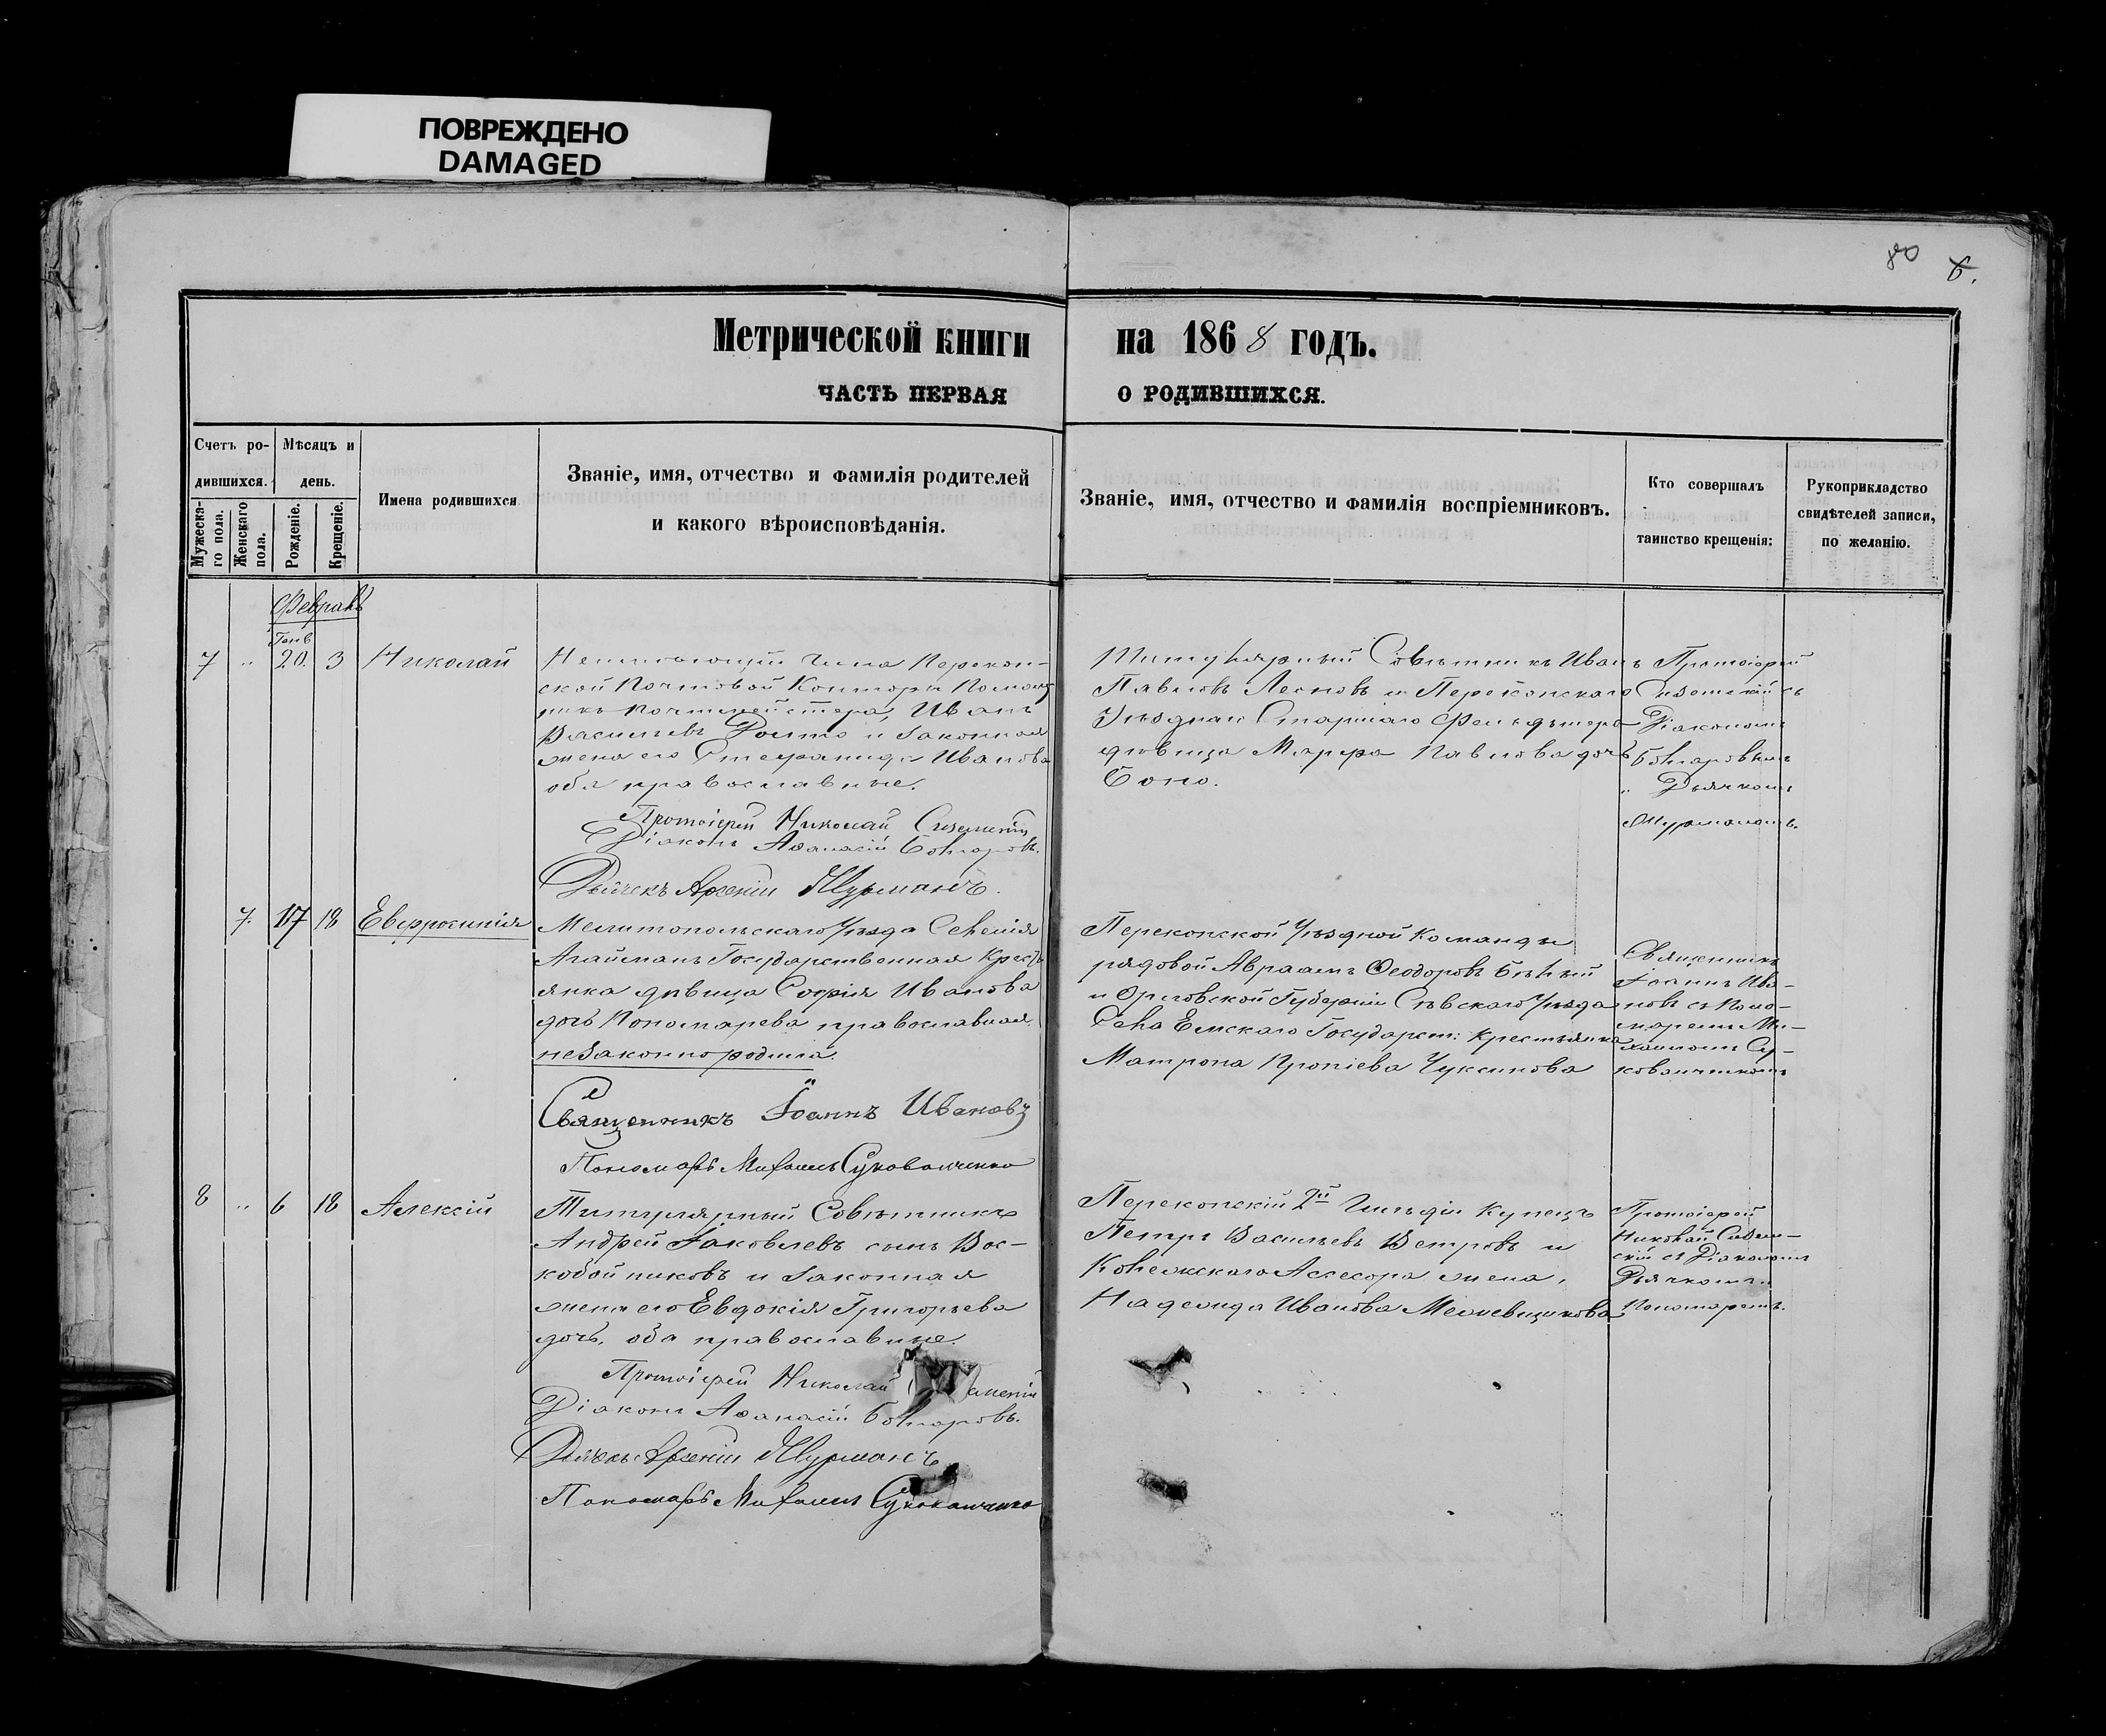 ПОВРЕЖДЕНО
DAMAGED
80
6.
Метрической книги на 1868 годъ.
ЧАСТЬ ПЕРВАЯ О РОДИВШИХСЯ.
Счетъ родившихся.
Мужескаго пола.
Женскаго пола.
Мѣсяцъ и день.
Рожденіе.
Крещеніе.
Имена родившихся
Званіе, имя, отчество и фамилія родителей
и какого вѣроисповѣданія.
Званіе, имя, отчество и фамилія воспріемниковъ.
Кто совершалъ
таинство крещенія:
Рукоприкладство
свидѣтелей записи,
по желанію.
Февраль
Генв
7 „ 20. 3 Николай
чина Перекоп-
ской Почтовой Конторы Помощ
никъ Почтмейстера, Иванъ
Васильевъ и законная
жена его Стефанида Иванова
оба православные.
Протоіерей Николай
Діаконъ Аѳанасій
Дьячекъ Арсеній Мурманъ.
Титулярный Совѣтникъ Иванъ
Павловъ Леоновъ и Перекопскаго
Старшаго Фельдшера
дѣвица Марфа Павлова дочь
Боно.
Протоіерей
съ
Діакономъ
Дьячкомъ
Мурманомъ.
7. 17 18 Евфросинія
Мелитопольскаго Уѣзда Селенія
Агайманъ Государственная Кресть
янка дѣвица Софія Иванова
дочь Пономарева православная,
незаконно родила.
Священникъ Іоаннъ Ивановъ
Пономарь Михаилъ
Перекопской Уѣздной Команды
рядовой Авраамъ Ѳеодоровъ Бѣлый
и Орловской Губерніи Сѣвскаго Уѣзда
Села Государст: крестьянка
Матрона
Священникъ
Іоаннъ Ива-
новъ съ Поно-
маремъ Ми-
хаиломъ Су-
8 „ 6 18 Алексій
Титулярный Совѣтникъ
Андрей Іаковлевъ сынъ Вос-
кобойниковъ и законная
жена его Евдокія Григорьева
дочь, оба православные.
Протоіерей Николай
Діаконъ Аѳанасій
Дьячекъ Арсеній Мурманъ
Пономарь Михаилъ
Перекопскій 2й Гильдіи Купецъ
Петръ Васильевъ Ветровъ и
Колежскаго Ассесора жена,
Надежда Иванова
Протоіерей
Николай
скій съ Діакономъ
Дьячкомъ и
Пономаремъ.